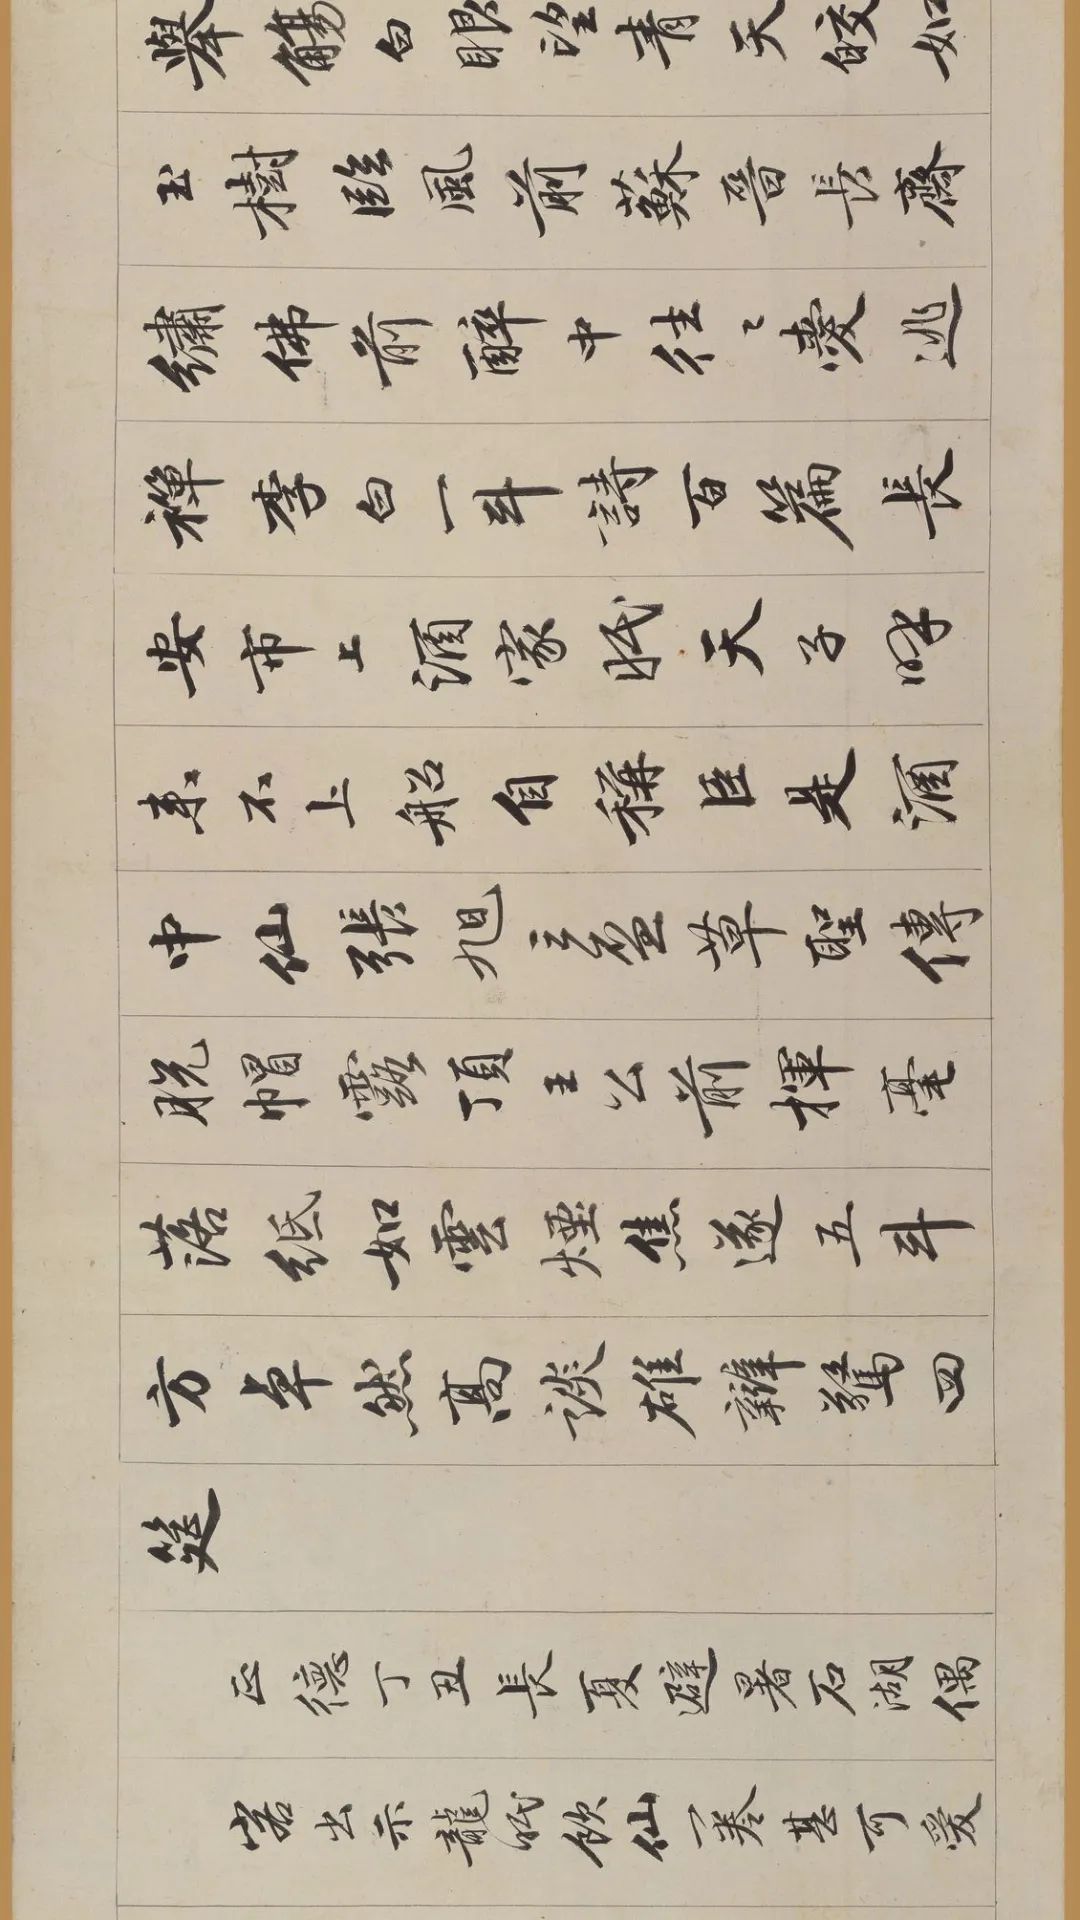 舉觴白眼望青天皎如
玉樹臨風前蘇晉長齋
繡佛前醉中往〻愛逃
禪李白一斗詩百篇長
安市上酒家眠天子呼
來不上船自稱臣是酒
中仙張旭三盃草聖傳
脫帽露頂王公前揮毫
落紙如雲煙焦遂五斗
方卓然高談雄辯驚四
筵
正德丁丑長夏避暑石湖偶
客出示龍眠飲仙一卷甚可愛